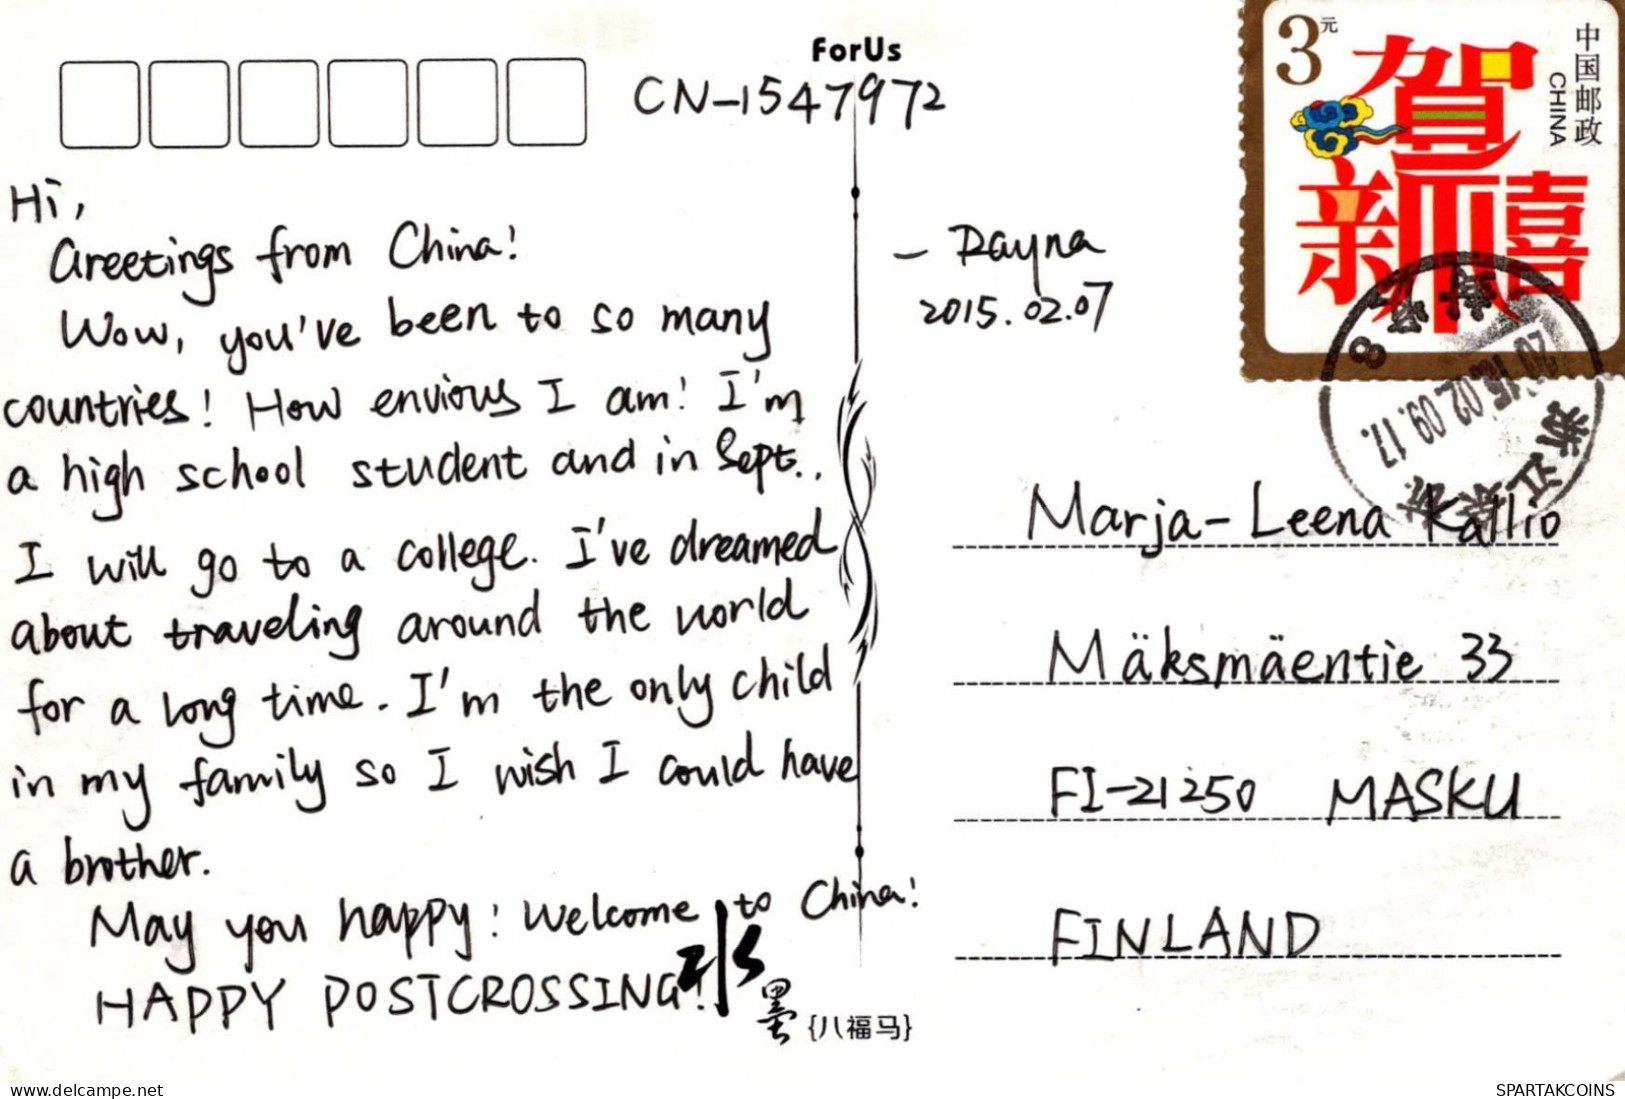 ForUs
CN-1547972
Hi,
Greetings from China!
Wow, you've been to so many
countries! How envious I am! I'm
a high school student and in Sept..
I will go to a college. I've dreamed
about traveling around the world
for a long time. I'm the only child
in my family so I wish I could have
a brother.
May you happy! Welcome to China!
HAPPY POSTCROSSING!
水
墨
{八福马}
- Rayna
2015.02.07
3元
中国邮政
CHINA
贺
新禧
8
2015.02.09.17
浙江
Marja-Leena Kallio
Mäksmäentie 33
FI-21250 MASKU
FINLAND
www.delcampe.net
SPARTAKCOINS